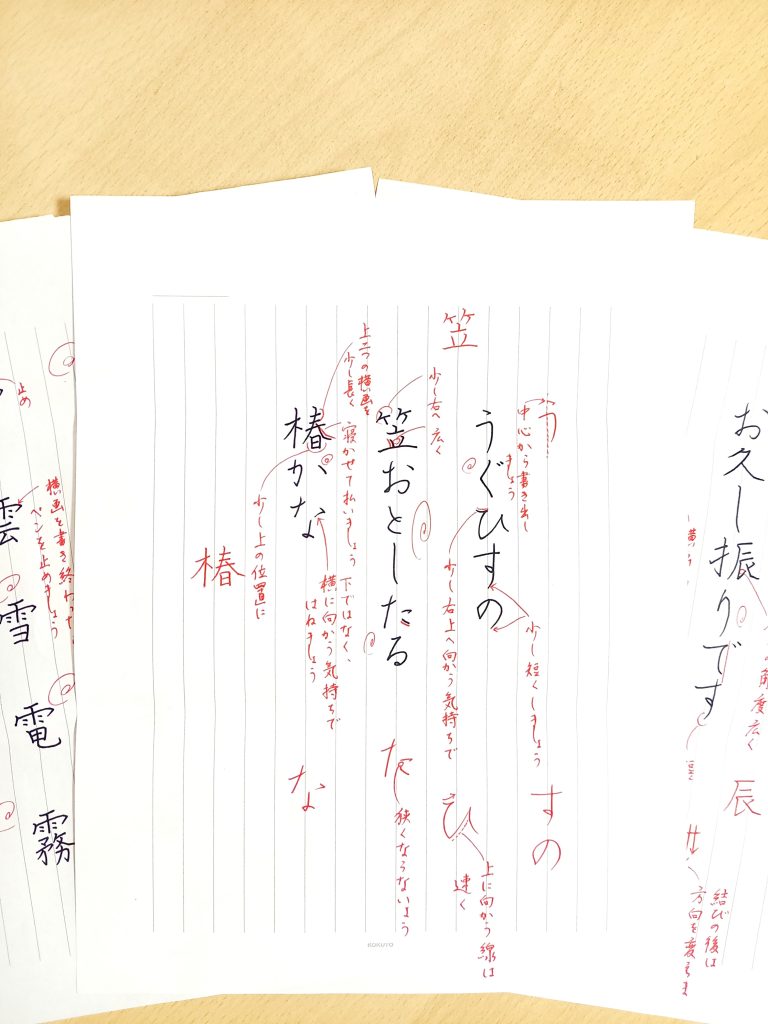 お久し振りです
の角度広く
辰
結びの後は
方向を変えま
笠
う
中心から書き出し
ましょう
うぐひすの
少し短くしましょう
すの
少し右上へ向かう気持ちで
ひ
上に向かう線は
速く
少し右へ広く
笠おとしたる
た
狭くならないよう
上二つの横画を
少し長く
寝かせて払いましょう
椿かな
下ではなく、
横に向かう気持ちで
はねましょう
な
少し上の位置に
椿
KOKUYO
止め
横画を書き終わったら
ペンを止めましょう
雲
雪
電
霧